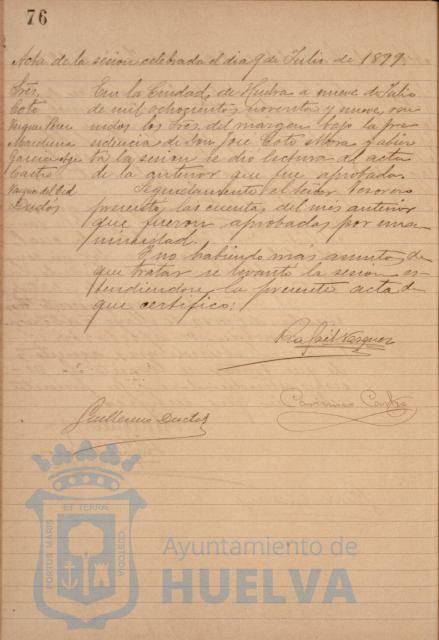 76
Acta de la sesion celebrada el dia 9 de Julio de 1899.
Sres,
Coto
Vazquez Perez
Garcia
Castro
Vazquez del Cid
Duclós
En la Ciudad de Huelva a nueve de Julio
de mil ochocientos noventa y nueve, reu
nidos los Sres, del margen bajo la pre
sidencia de Don José Coto Mora y abier
ta la sesion se dio lectura al acta
de la anterior que fue aprobada.
Seguidamente el Señor Tesorero
presentó las cuentas del mes anterior
que fueron aprobadas por una-
nimidad.
Y no habiendo más asuntos de
que tratar se levantó la sesion es-
tendiendose la presente acta de
que certifico:
Rafael Vazquez
Guillermo Duclós
Castro
PORTUS MARIS ET TERRÆ CUSTODIA
Ayuntamiento de
HUELVA